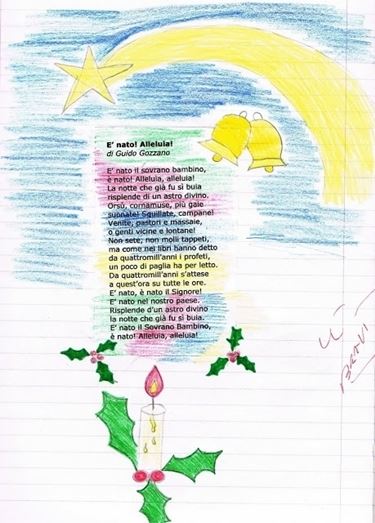 E' nato! Alleluia!
di Guido Gozzano
E' nato il sovrano bambino,
è nato! Alleluia, alleluia!
La notte che già fu sì buia
risplende di un astro divino.
Orsù, cornamuse, più gaie
suonate! Squillate, campane!
Venite, pastori e massaie,
o genti vicine e lontane!
Non sete, non molli tappeti,
ma come nei libri hanno detto
da quattromill'anni i profeti,
un poco di paglia ha per letto.
Da quattromill'anni s'attese
a quest'ora su tutte le ore.
E' nato, è nato il Signore!
E' nato nel nostro paese.
Risplende d'un astro divino
la notte che già fu sì buia.
E' nato il Sovrano Bambino,
è nato! Alleluia, alleluia!
BRAVI